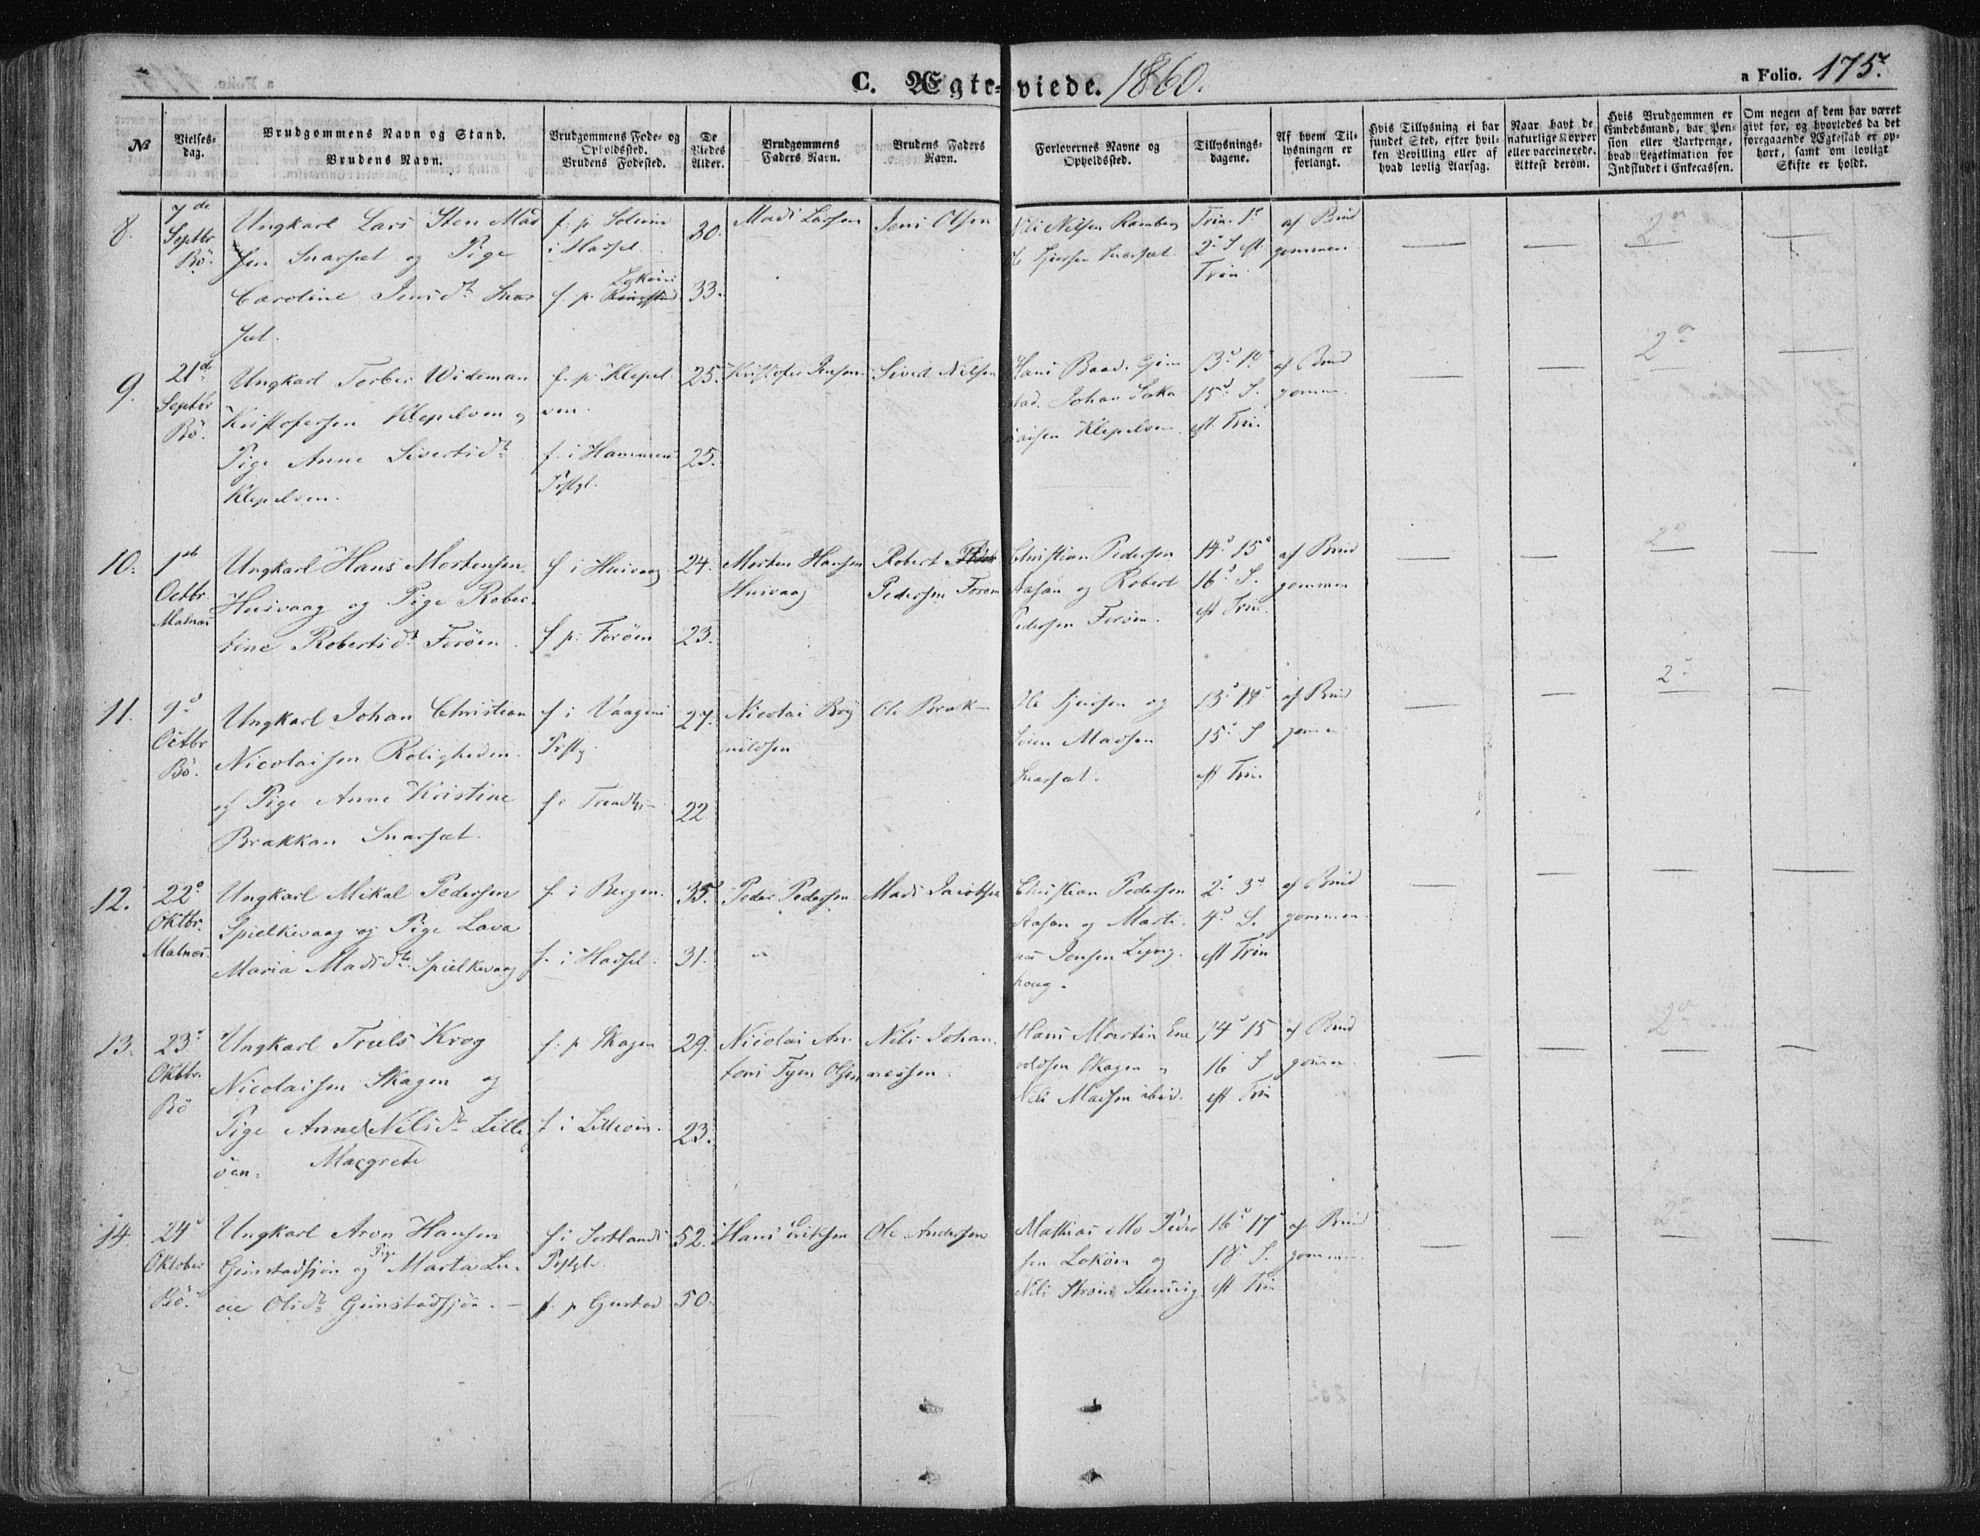 C. Ægte-viede. 1860.
a Folio. 175.
№
Vielses-dag.
Brudgommens Navn og Stand.
Brudens Navn.
Brudgommens Føde- og Opholdssted.
Brudens Fødested.
De Viedes Alder.
Brudgommens Faders Navn.
Brudens Faders Navn.
Forlovernes Navne og Opholdssted.
Tillysnings-dagene.
Af hvem Til-lysningen er forlangt.
Hvis Tillysning ei har fundet Sted, efter hvil-ken Bevilling eller af hvad lovlig Aarsag.
Naar havt de naturlige Kopper eller vaccinerede. Attest derom.
Hvis Brudgommen er Embedsmand, har Pen-sion eller Vartpenge, hvad Legetimation for Indskudet i Enkecassen.
Om nogen af dem har været givt før, og hvorledes da det foregaaende Ægteskab er op-hørt, samt om lovligt Skifte er holdt.
8. 7de Septbr Bö.
Ungkarl Lars Sten Mad
sen Snarset og Pige
Caroline Jensdt Snar
set.
i Hassel.
30.
33.
Mads Larsen
Jens Olsen
Nils Nilsen Ramberg
Trin. 1ste
2d S. eft.
Trin.
af Brud
gommen
9. 21de Septbr Bö.
Ungkarl Torber Wideman
Kristofersen Klepelven og
Pige Anne Sivertsdt
Klepelven.
f. p. Klepel
ven.
f. i Hammerø
Prstgl.
25.
25.
Kristofer Jensen
Sivert Nilsen
Hans Baad. Gim
stad. Johan Saka
riasen Klepelven
13d 14d
15d S.
eft Trin.
af Brud
gommen.
10. 1ste Octbr Malnæs
Ungkarl Hans Mortensen
Husvaag og Pige Rober-
tine Robertsdt Forøen.
f i Husvaag
f p. Forøen
24.
23.
Morten Hansen
Husvaag
Robert
Pedersen Forøen
Christian Pedersen
Aasan og Robert
Pedersen Forøen.
14d 15d
16d S.
eft Trin.
af Brud
gommen
11. 1d Octbr Bö.
Ungkarl Johan Christian
Nicolaisen Roligheden.
og Pige Anne Kristine
Brakkan Snarset.
f i Vaagens
Prstg.
27.
22
Nicolai Bry
nildsen
Ole Brak
Ole Jensen og
Sören Madsen
Snarset.
13d 14d
15d S
eft Trin.
af Brud
gommen
12. 22d Oktbr. Malnæs
Ungkarl Mikal Pedersen
Spielkevaag og Pige Lava
Maria Madsdtr Spielkevaag
f i Bergen.
f. i Hassel.
35.
31.
Peder Pedersen
Mads Jacobsen
Christian Pedersen
Aasan og Marti-
nus Jensen Lyng-
houg.
2d 3d
4d S.
eft Trin
af Brud
gommen.
13. 23d Oktbr. Bö
Ungkarl Truls Krog
Nicolaisen Skagen og
Pige Anne Nilsdt Lille
öen. Margrete
f. p Skagen
f i Lilleöen.
29.
23.
Nicolai An-
toni Tyen Olsen
Nils Johan-
nessen.
Hans Martin Ene
voldsen Skagen og
Nils Madsen ibid.
14d 15
16 S
eft Trin
af Brud
gommen.
14. 24d Oktober Bö.
Ungkarl Aron Hansen
Gimstadsjøn og Pige Marta Lu-
cie Olsdt Gimstadsjøn.
f i Sortlands
Prstgl.
52.
50.
Hans Eriksen
Ole Andersen
Mathias Mo Peder
sen Lokøen og
16d 17d
18d S.
eft Trin
af Brud
gommen